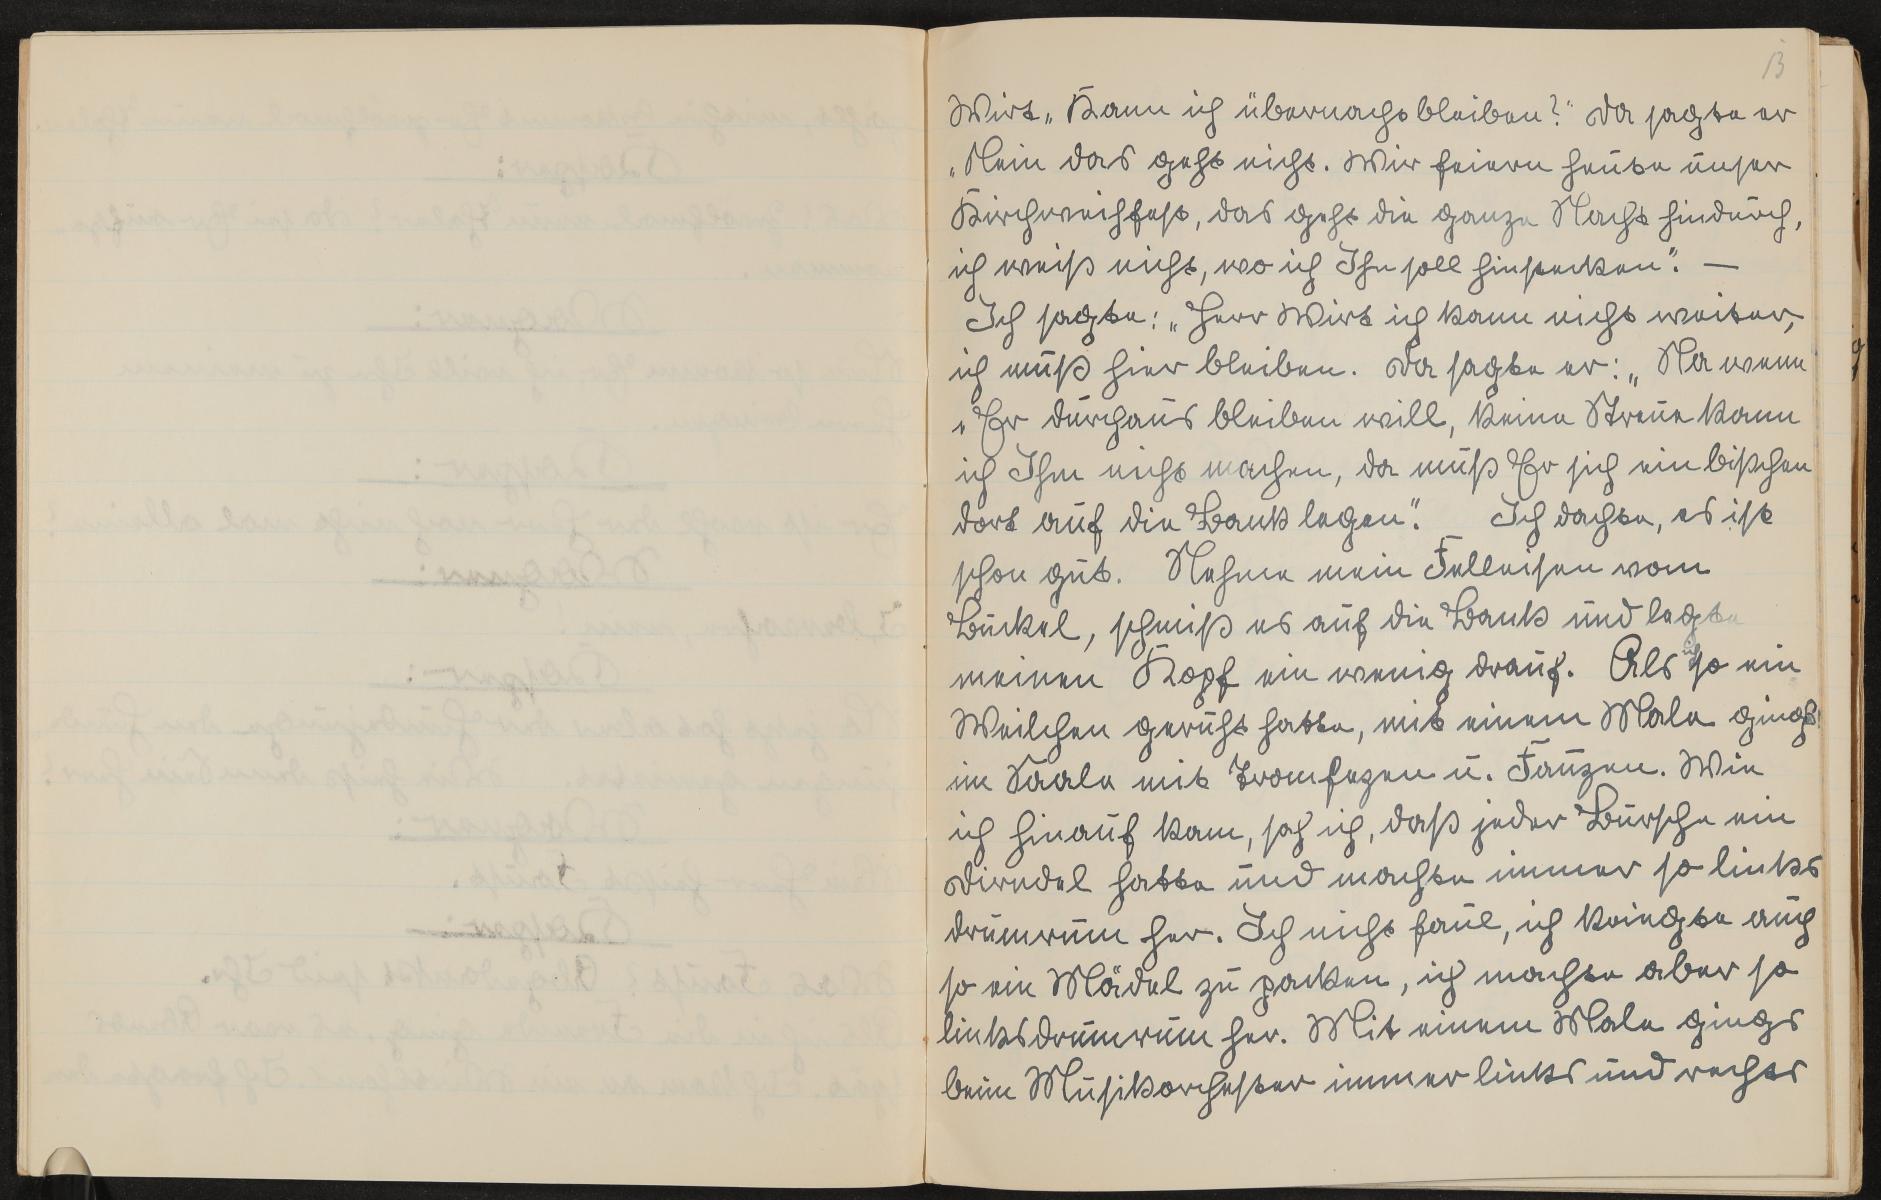 13
Wirt „Kann ich übernacht bleiben?" Da sagte er
„Nein das geht nicht. Wir feiern heute unser
Kirchweihfest, das geht die ganze Nacht hindurch,
ich weiß nicht, wo ich Ihn soll hinstecken". —
Ich sagte: „Herr Wirt ich kann nicht weiter,
ich muß hier bleiben. Da sagte er: „Na wenn
„Er durchaus bleiben will, keine Streue kann
ich Ihm nicht machen, da muß Er sich ein bißchen
dort auf die Bank legen". Ich dachte, es ist
schon gut. Nehme mein Felleisen vom
Buckel, schmiß es auf die Bank und legte
meinen Kopf ein wenig drauf. Als ich so ein
Weilchen geruht hatte, mit einem Male gings
im Saale mit Tromfezen u. Fauzen. Wie
ich hinauf kam, sah ich, daß jeder Bursche ein
Dirndel hatte und machte immer so links
drumrum her. Ich nicht faul, ich kriegte auch
so ein Mädel zu packen, ich machte aber so
linksdrumrum her. Mit einem Male gings
beim Musikorchester immer links und rechts